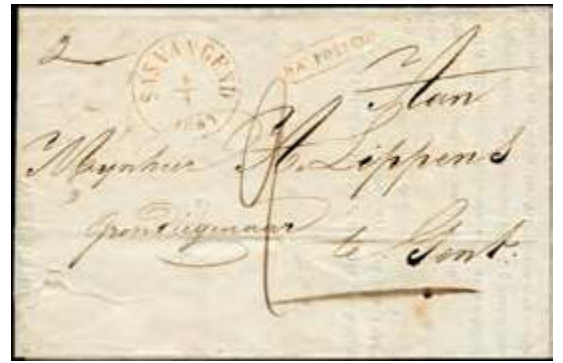 2
SAS VAN GEND
NA POSTTYD
Aan
Mynheer A. Lippens
grondeigenaar
te Gent.